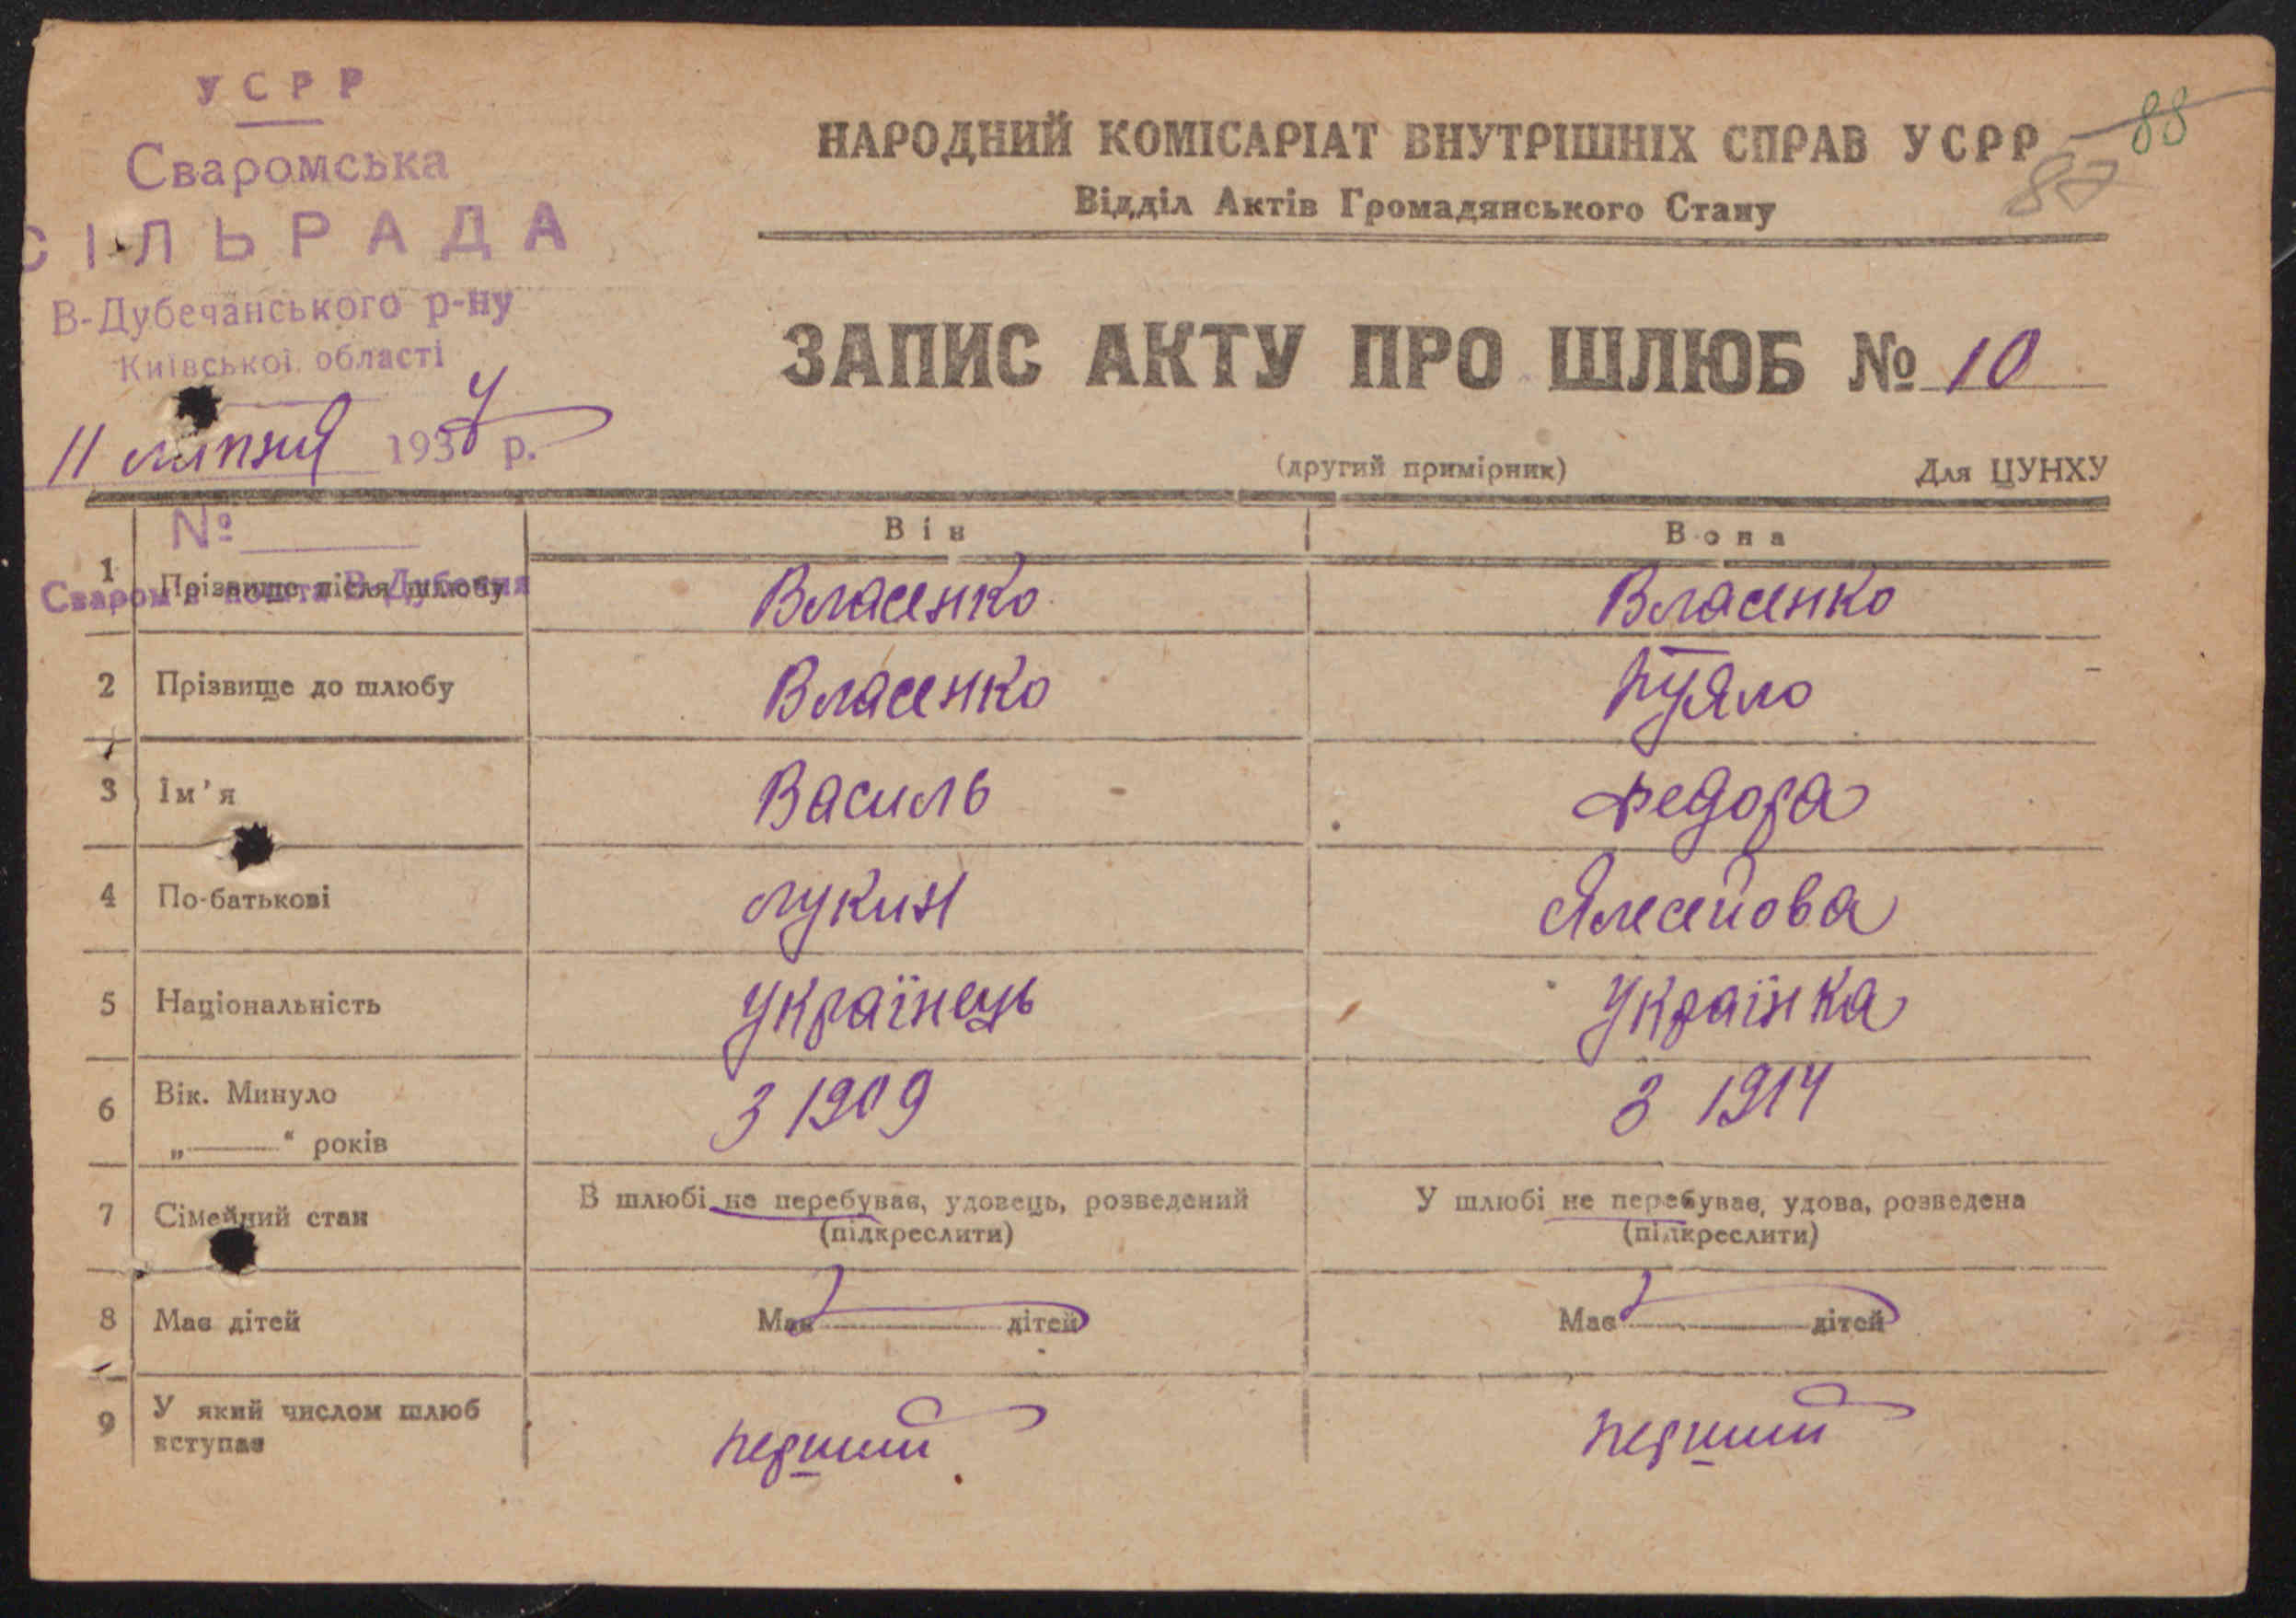 УСРР
Сваромська
СІЛЬРАДА
В-Дубечанського р-ну
Київської області
11 липня 193 р.
№
НАРОДНИЙ КОМІСАРІАТ ВНУТРІШНІХ СПРАВ УСРР
88
87
Відділ Актів Громадянського Стану
ЗАПИС АКТУ ПРО ШЛЮБ № 10
(другий примірник) Для ЦУНХУ
Він Вона
1 Прізвище після шлюбу Власенко Власенко
2 Прізвище до шлюбу Власенко
3 Ім'я Василь Федора
4 По-батькові Лукин Алесейова
5 Національність Українець Українка
6 Вік. Минуло „ “ років З 1909 З 1914
7 Сімейний стан В шлюбі не перебуває, удовець, розведений (підкреслити) У шлюбі не перебуває, удова, розведена (підкреслити)
8 Має дітей Має дітей Має дітей
9 У який числом шлюб вступає перший перший